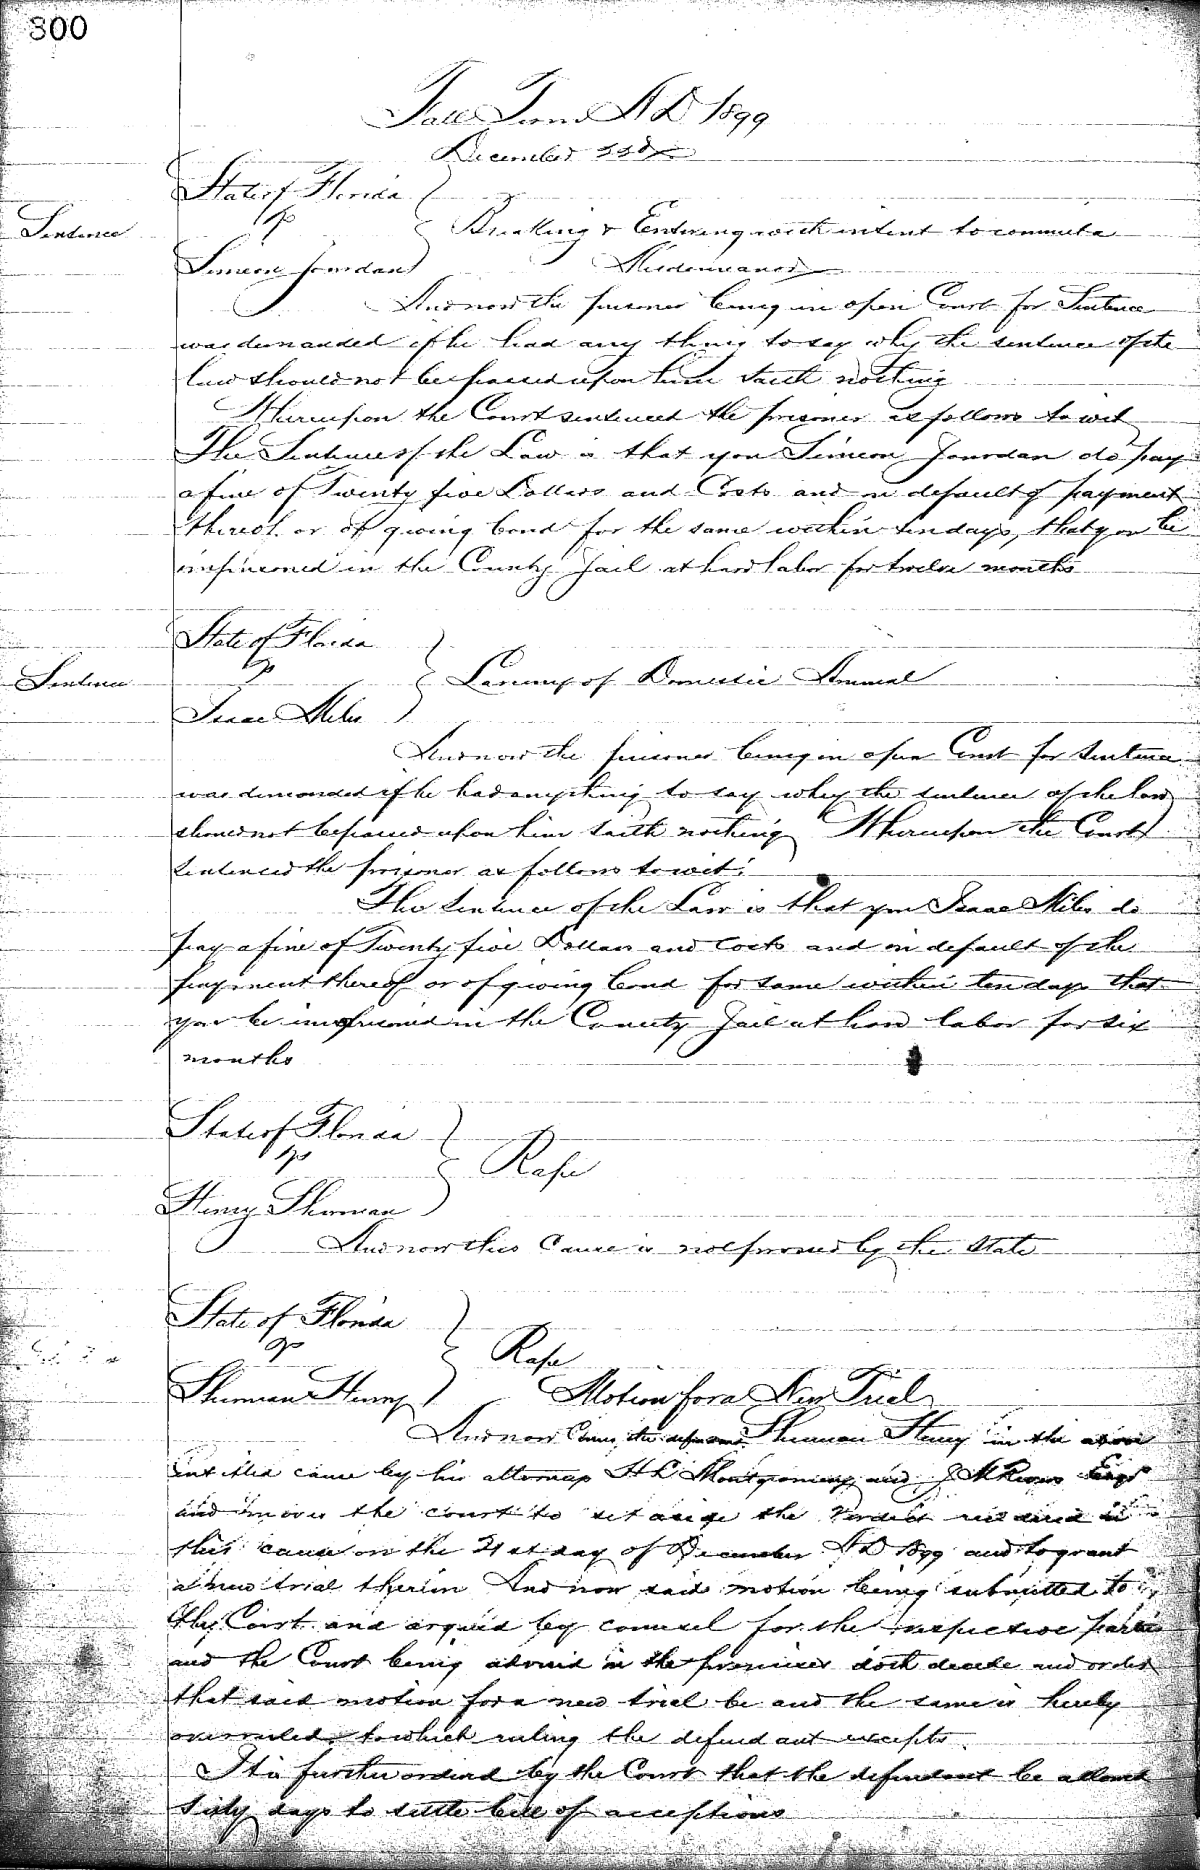 300
Fall Term A D 1899
December 22d
State of Florida
vs
Sentence
Breaking & Entering with intent to commit a
Simeon Jourdan
Misdemeanor
And now the prisoner being in open Court for Sentence
was demanded if he had any thing to say why the sentence of the
law should not be passed upon him saith nothing
Whereupon the Court sentenced the prisoner as follows to wit
The Sentence of the Law is that you Simeon Jourdan do pay
a fine of Twenty five Dollars and Costs and in default of payment
thereof or of giving bond for the same within ten days, that you be
imprisoned in the County Jail at hard labor for twelve months
State of Florida
vs
Sentence
Larceny of Domestic Animal
Isaac Miles
And now the prisoner being in open Court for sentence
was demanded if he had anything to say why the sentence of the law
should not be passed upon him saith nothing Whereupon the Court
sentenced the prisoner as follows to wit:
The sentence of the Law is that you Isaac Miles do
pay a fine of Twenty five Dollars and Costs and in default of the
payment thereof or of giving bond for same within ten days that
you be imprisoned in the County Jail at hard labor for six
months
State of Florida
vs
Rape
Henry Sherman
And now this Cause is nol prossed by the State
State of Florida
vs
Rape
Sherman Henry
Motion for a New Trial
And now Comes the defendant Sherman Henry in the above
entitled cause by his attorneys H L Montgomery and J M
and moves the court to set aside the Verdict rendered in
this cause on the 21st day of December A D 1899 and to grant
a new trial therein And now said motion being submitted to
the Court and argued by counsel for the respective parties
and the Court being advised in the premises doth decide and order
that said motion for a new trial be and the same is hereby
overruled to which ruling the defendant excepts.
It is further ordered by the Court that the defendant be allowed
sixty days to settle bill of exceptions